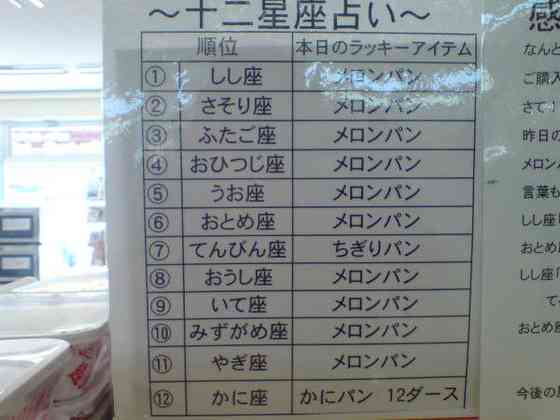 ～十二星座占い～
順位 本日のラッキーアイテム
① しし座 メロンパン
② さそり座 メロンパン
③ ふたご座 メロンパン
④ おひつじ座 メロンパン
⑤ うお座 メロンパン
⑥ おとめ座 メロンパン
⑦ てんびん座 ちぎりパン
⑧ おうし座 メロンパン
⑨ いて座 メロンパン
⑩ みずがめ座 メロンパン
⑪ やぎ座 メロンパン
⑫ かに座 かにパン 12ダース
感
なんと
ご購入
さて！
昨日の
メロンパ
言葉も
しし座
おとめ
しし座「
て
おとめ座
今後の